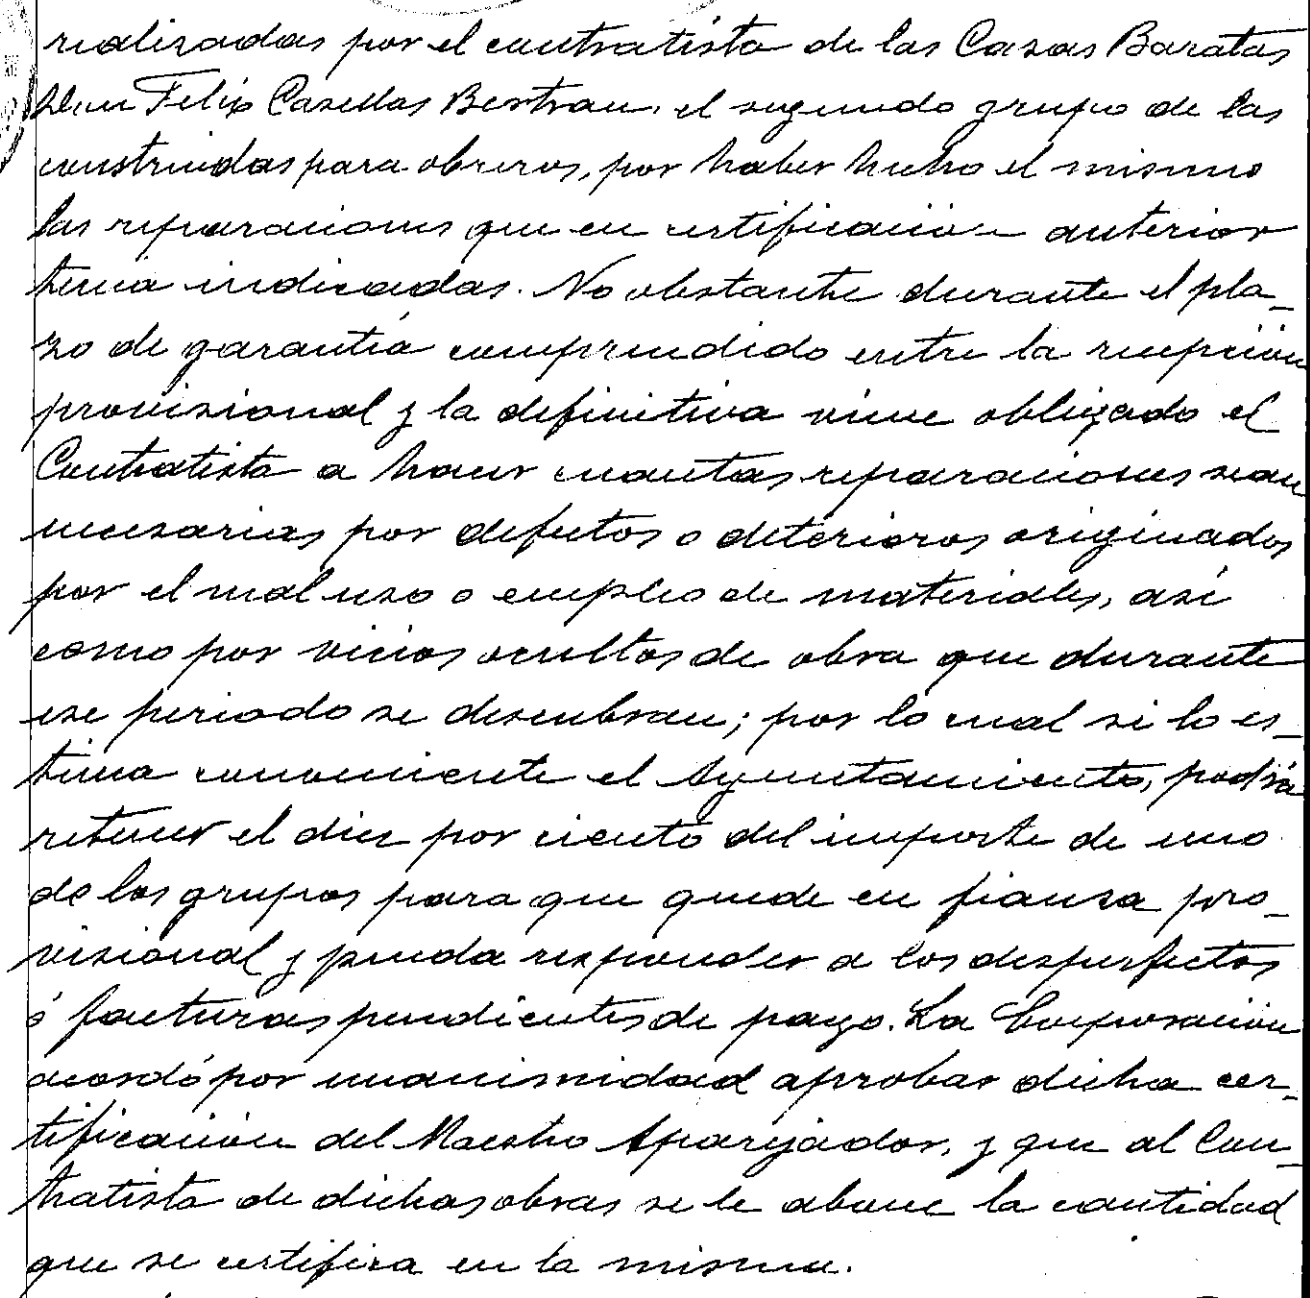 realizadas por el contratista de las Casas Baratas
Don Felix Casellas Bertran, el segundo grupo de las
construidas para obreros, por haber hecho el mismo
las reparaciones que en certificación anterior
tenia indicadas. No obstante durante el pla_
zo de garantía comprendido entre la recepción
provisional y la definitiva viene obligado el
Contratista a hacer cuantas reparaciones sean
necesarias por defectos o deterioros originados
por el mal uso o empleo de materiales, asi
como por vicios ocultos de obra que durante
ese periodo se descubran; por lo cual si lo es_
tima conveniente el Ayuntamiento, podrá
retener el diez por ciento del importe de uno
de los grupos para que quede en fianza pro_
visional y pueda responder a los desperfectos
ó facturas pendientes de pago. La Corporación
acordó por unanimidad aprobar dicha cer_
tificación del Maestro Aparejador, y que al Con_
tratista de dichas obras se le abone la cantidad
que se certifica en la misma.